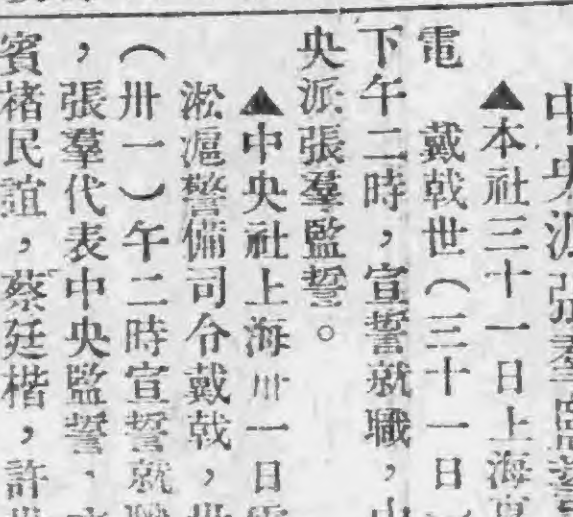 中央派張羣監誓
▲本社三十一日上海專
電　戴戟世(三十一日)
下午二時,宣誓就職,中
央派張羣監誓。
▲中央社上海卅一日電
淞滬警備司令戴戟,世
(卅一)午二時宣誓就職
,張羣代表中央監誓,
賓褚民誼,蔡廷楷,許世